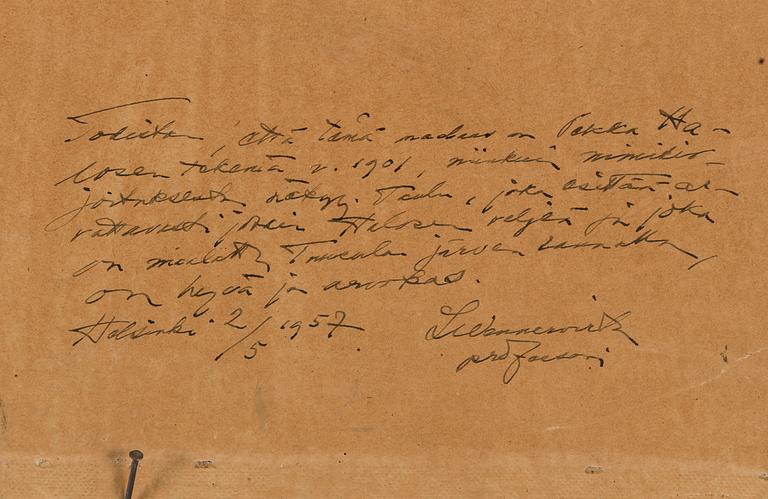 Todistan, että tämä maalaus on Pekka Ha-
losen tekemä v. 1901, niinkuin nimikir-
joituksesta näkyy. Taulu, joka esittää ar-
vattavasti jotain Halosen veljeä ja joka
on maalattu Tuusulan järven rannalla,
on hyvä ja arvokas.
Helsinki 2/5 1957
L Wennervirta
professori